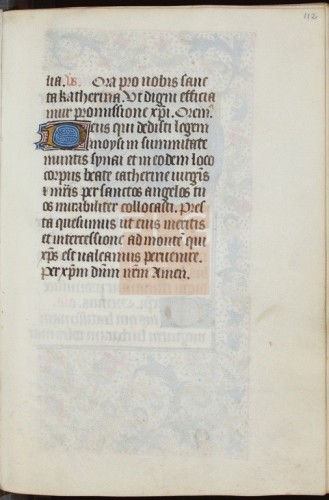 112
lia. vs. Ora pro nobis sanc
ta katherina. Ut digni efficia
mur promissione xpi. Orem
Deus qui dedisti legem
moysi in summitate
montis synai et in eodem loco
corpus beate catherine virgis
& mris per sanctos angelos tu
os mirabiliter collocasti. Pres
ta quesumus ut eius meritis
et intercessione ad monte qui
xps est valeamus pervenire.
Per xpm dnm nrm Amen.